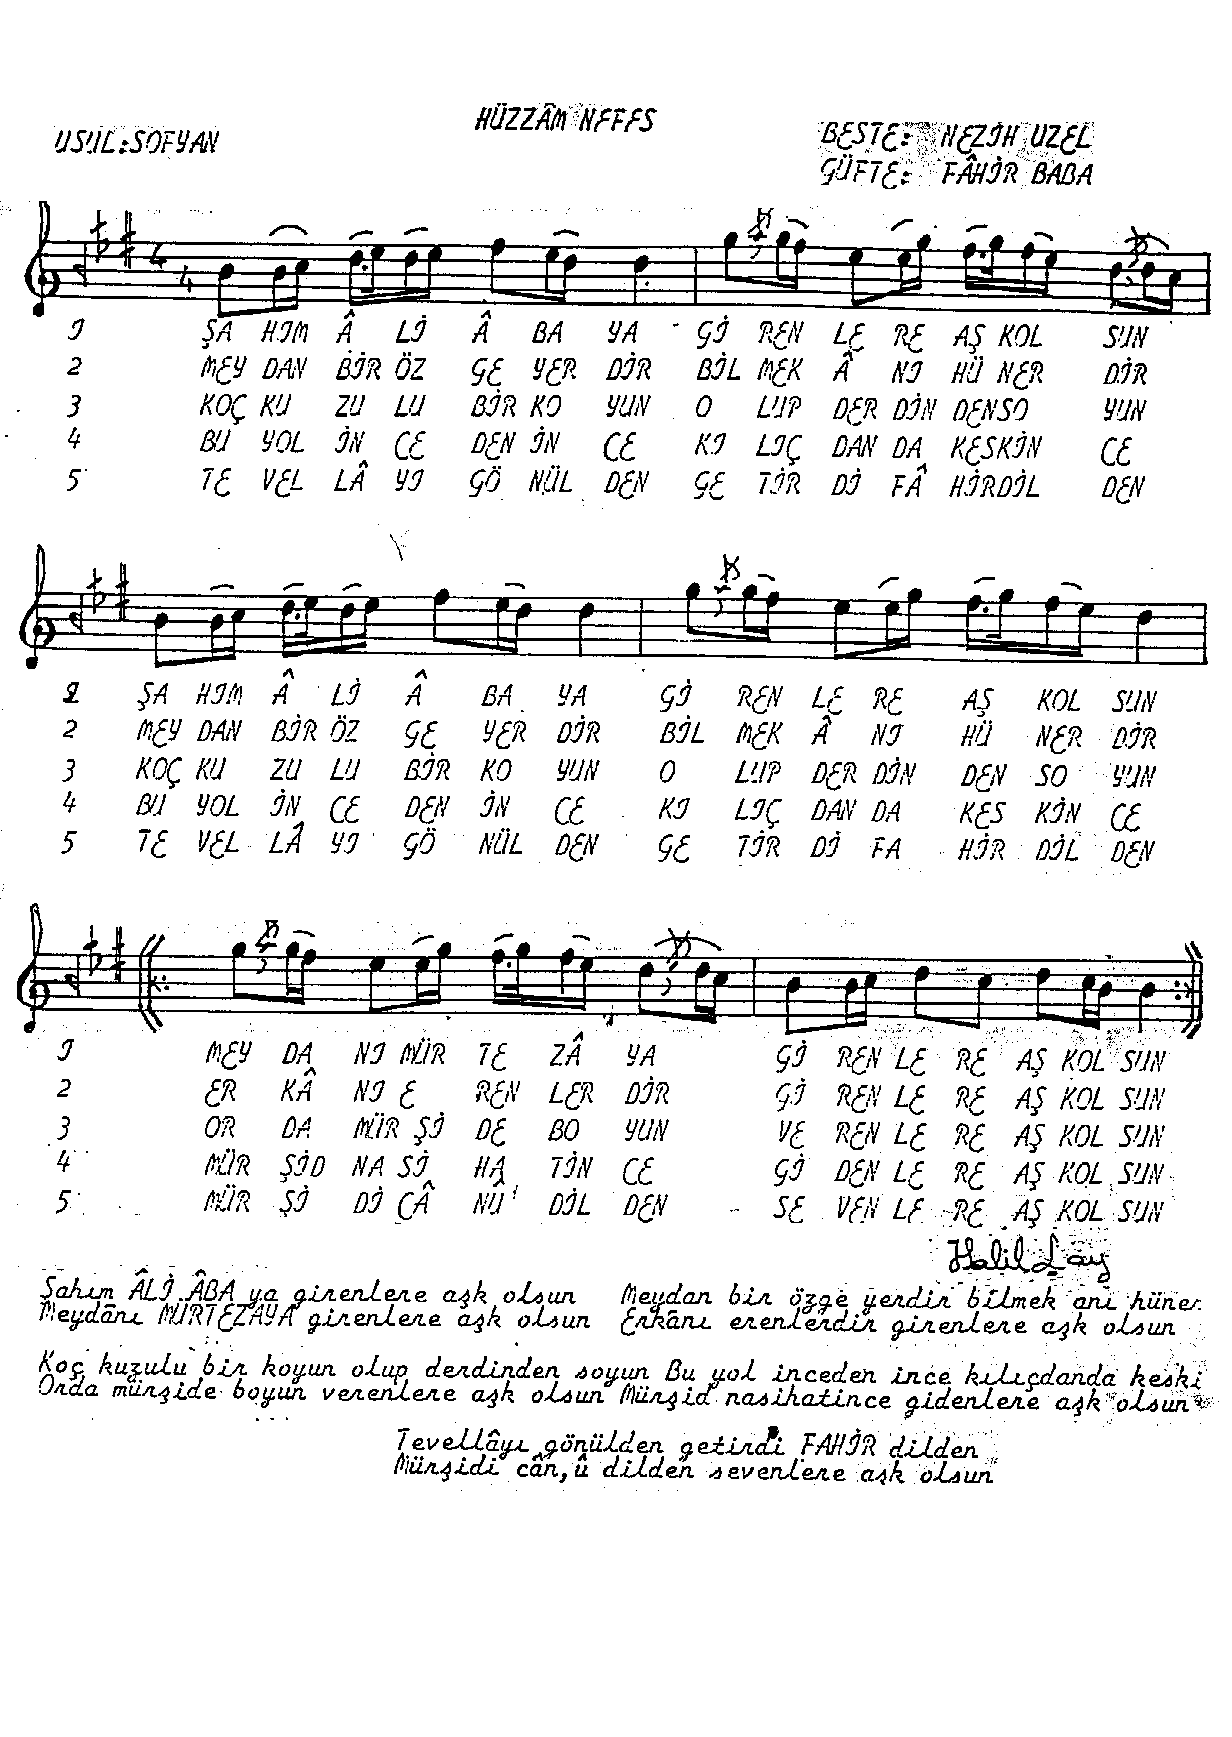 HÜZZÂM NEFES
USUL:SOFYAN
BESTE: NEZİH UZEL
GÜFTE: FÂHİR BABA
4
4
1 ŞA HIM Â Lİ Â BA YA Gİ REN LE RE AŞ KOL SUN
2 MEY DAN BİR ÖZ GE YER DİR BİL MEK Â NI HÜ NER DİR
3 KOÇ KU ZU LU BİR KO YUN O LUP DER DİN DEN SO YUN
4 BU YOL İN CE DEN İN CE KI LIÇ DAN DA KES KİN CE
5 TE VEL LÂ YI GÖ NÜL DEN GE TİR Dİ FÂ HİR DİL DEN
1 ŞA HIM Â Lİ Â BA YA Gİ REN LE RE AŞ KOL SUN
2 MEY DAN BİR ÖZ GE YER DİR BİL MEK Â NI HÜ NER DİR
3 KOÇ KU ZU LU BİR KO YUN O LUP DER DİN DEN SO YUN
4 BU YOL İN CE DEN İN CE KI LIÇ DAN DA KES KİN CE
5 TE VEL LÂ YI GÖ NÜL DEN GE TİR Dİ FA HİR DİL DEN
1 MEY DA NI MÜR TE ZÂ YA Gİ REN LE RE AŞ KOL SUN
2 ER KÂ NI E REN LER DİR Gİ REN LE RE AŞ KOL SUN
3 OR DA MÜR Şİ DE BO YUN VE REN LE RE AŞ KOL SUN
4 MÜR ŞİD NA Sİ HA TİN CE Gİ DEN LE RE AŞ KOL SUN
5 MÜR Şİ Dİ CÂ NÛ DİL DEN SE VEN LE RE AŞ KOL SUN
Şahım ÂLİ ÂBA ya girenlere aşk olsun Meydan bir özge yerdir bilmek anı hüner
Meydânı MÜRTEZAYA girenlere aşk olsun Erkânı erenlerdir girenlere aşk olsun
Koç kuzulu bir koyun olup derdinden soyun Bu yol inceden ince kılıçdanda keski
Orda mürşide boyun verenlere aşk olsun Mürşid nasihatince gidenlere aşk olsun
Tevellâyı gönülden getirdi FAHİR dilden
Mürşidi cân,û dilden sevenlere aşk olsun